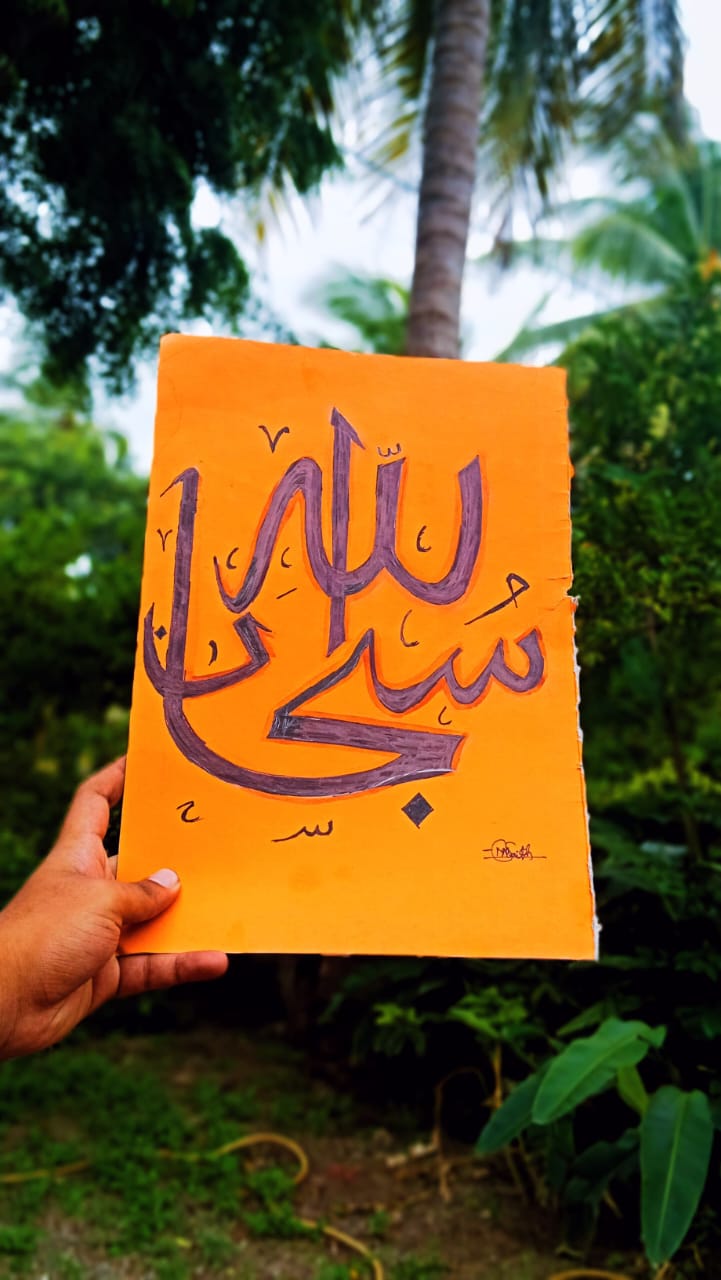 سُبحان
الله